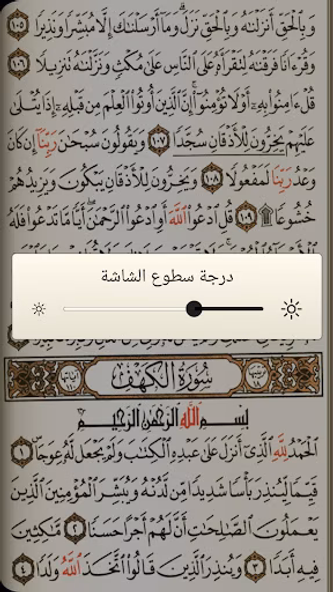 وَبِالْحَقِّ أَنزَلْنَٰهُ وَبِالْحَقِّ نَزَلَ ۗ وَمَا أَرْسَلْنَٰكَ إِلَّا مُبَشِّرًا وَنَذِيرًا ١٠٥
وَقُرْءَانًا فَرَقْنَٰهُ لِتَقْرَأَهُۥ عَلَى النَّاسِ عَلَىٰ مُكْثٍ وَنَزَّلْنَٰهُ تَنزِيلًا ١٠٦
قُلْ ءَامِنُوا بِهِۦٓ أَوْ لَا تُؤْمِنُوٓا ۚ إِنَّ الَّذِينَ أُوتُوا الْعِلْمَ مِن قَبْلِهِۦٓ إِذَا يُتْلَىٰ
عَلَيْهِمْ يَخِرُّونَ لِلْأَذْقَانِ سُجَّدًا ١٠٧ وَيَقُولُونَ سُبْحَٰنَ رَبِّنَآ إِن كَانَ
وَعْدُ رَبِّنَا لَمَفْعُولًا ١٠٨ وَيَخِرُّونَ لِلْأَذْقَانِ يَبْكُونَ وَيَزِيدُهُمْ
خُشُوعًا ۩ ١٠٩ قُلِ ادْعُوا اللَّهَ أَوِ ادْعُوا الرَّحْمَٰنَ ۖ أَيًّا مَّا تَدْعُوا فَلَهُ
درجة سطوع الشاشة
سُورَةُ الكَهْفِ
بِسْمِ اللَّهِ الرَّحْمَٰنِ الرَّحِيمِ
الْحَمْدُ لِلَّهِ الَّذِىٓ أَنزَلَ عَلَىٰ عَبْدِهِ الْكِتَٰبَ وَلَمْ يَجْعَل لَّهُۥ عِوَجًا ۜ ١
قَيِّمًا لِّيُنذِرَ بَأْسًا شَدِيدًا مِّن لَّدُنْهُ وَيُبَشِّرَ الْمُؤْمِنِينَ الَّذِينَ
يَعْمَلُونَ الصَّٰلِحَٰتِ أَنَّ لَهُمْ أَجْرًا حَسَنًا ٢ مَّٰكِثِينَ
فِيهِ أَبَدًا ٣ وَيُنذِرَ الَّذِينَ قَالُوا اتَّخَذَ اللَّهُ وَلَدًا ٤